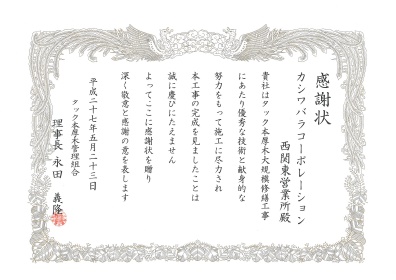 感謝状
カシワバラコーポレーション
西関東営業所殿
貴社はタック本厚木大規模修繕工事
にあたり優秀な技術と献身的な
努力をもって施工に尽力され
本工事の完成を見ましたことは
誠に慶びにたえません
よってここに感謝状を贈り
深く敬意と感謝の意を表します
平成二十七年五月二十三日
タック本厚木管理組合
理事長 永田 義隆